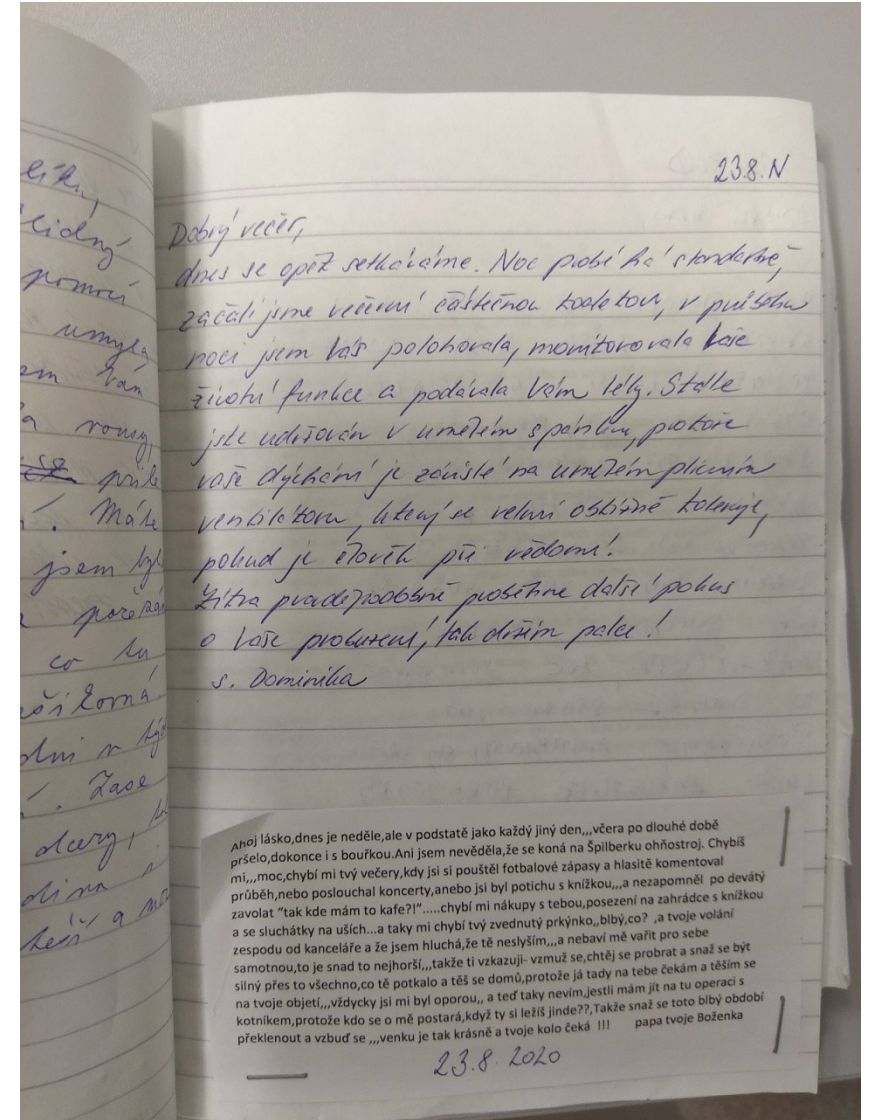 líku,
lidný
pomocí
umyla
em Vám
a rousy,
se příle
. Máte
jsem byl
co tu
šikovná.
dni v tý
. Zase
dcery,
těší a
23.8.N
Dobrý večer,
dnes se opět setkáváme. Noc probíhá standartně,
začali jsme večerní částečnou toaletou, v průběhu
noci jsem Vás polohovala, monitorovala Vaše
životní funkce a podávala Vám léky. Stále
jste udržován v umělém spánku, protože
vaše dýchání je závislé na umělém plicním
ventilátoru, který se velmi obtížně toleruje,
pokud je člověk při vědomí.
Zítra pravděpodobně proběhne další pokus
o Vaše probuzení, tak držím palce!
s. Dominika
Ahoj lásko,dnes je neděle,ale v podstatě jako každý jiný den,,,včera po dlouhé době
pršelo,dokonce i s bouřkou.Ani jsem nevěděla,že se koná na Špilberku ohňostroj. Chybíš
mi,,,moc,chybí mi tvý večery,kdy jsi si pouštěl fotbalové zápasy a hlasitě komentoval
průběh,nebo poslouchal koncerty,anebo jsi byl potichu s knížkou,,,a nezapomněl po devátý
zavolat "tak kde mám to kafe?!".....chybí mi nákupy s tebou,posezení na zahrádce s knížkou
a se sluchátky na uších...a taky mi chybí tvý zvednutý prkýnko,,blbý,co? ,a tvoje volání
zespodu od kanceláře a že jsem hluchá,že tě neslyším,,,a nebaví mě vařit pro sebe
samotnou,to je snad to nejhorší,,,takže ti vzkazuji- vzmuž se,chtěj se probrat a snaž se být
silný přes to všechno,co tě potkalo a těš se domů,protože já tady na tebe čekám a těším se
na tvoje objetí,,,vždycky jsi mi byl oporou,, a teď taky nevím,jestli mám jít na tu operaci s
kotníkem,protože kdo se o mě postará,když ty si ležíš jinde??,Takže snaž se toto blbý období
překlenout a vzbuď se ,,,venku je tak krásně a tvoje kolo čeká !!! papa tvoje Boženka
23.8.2020